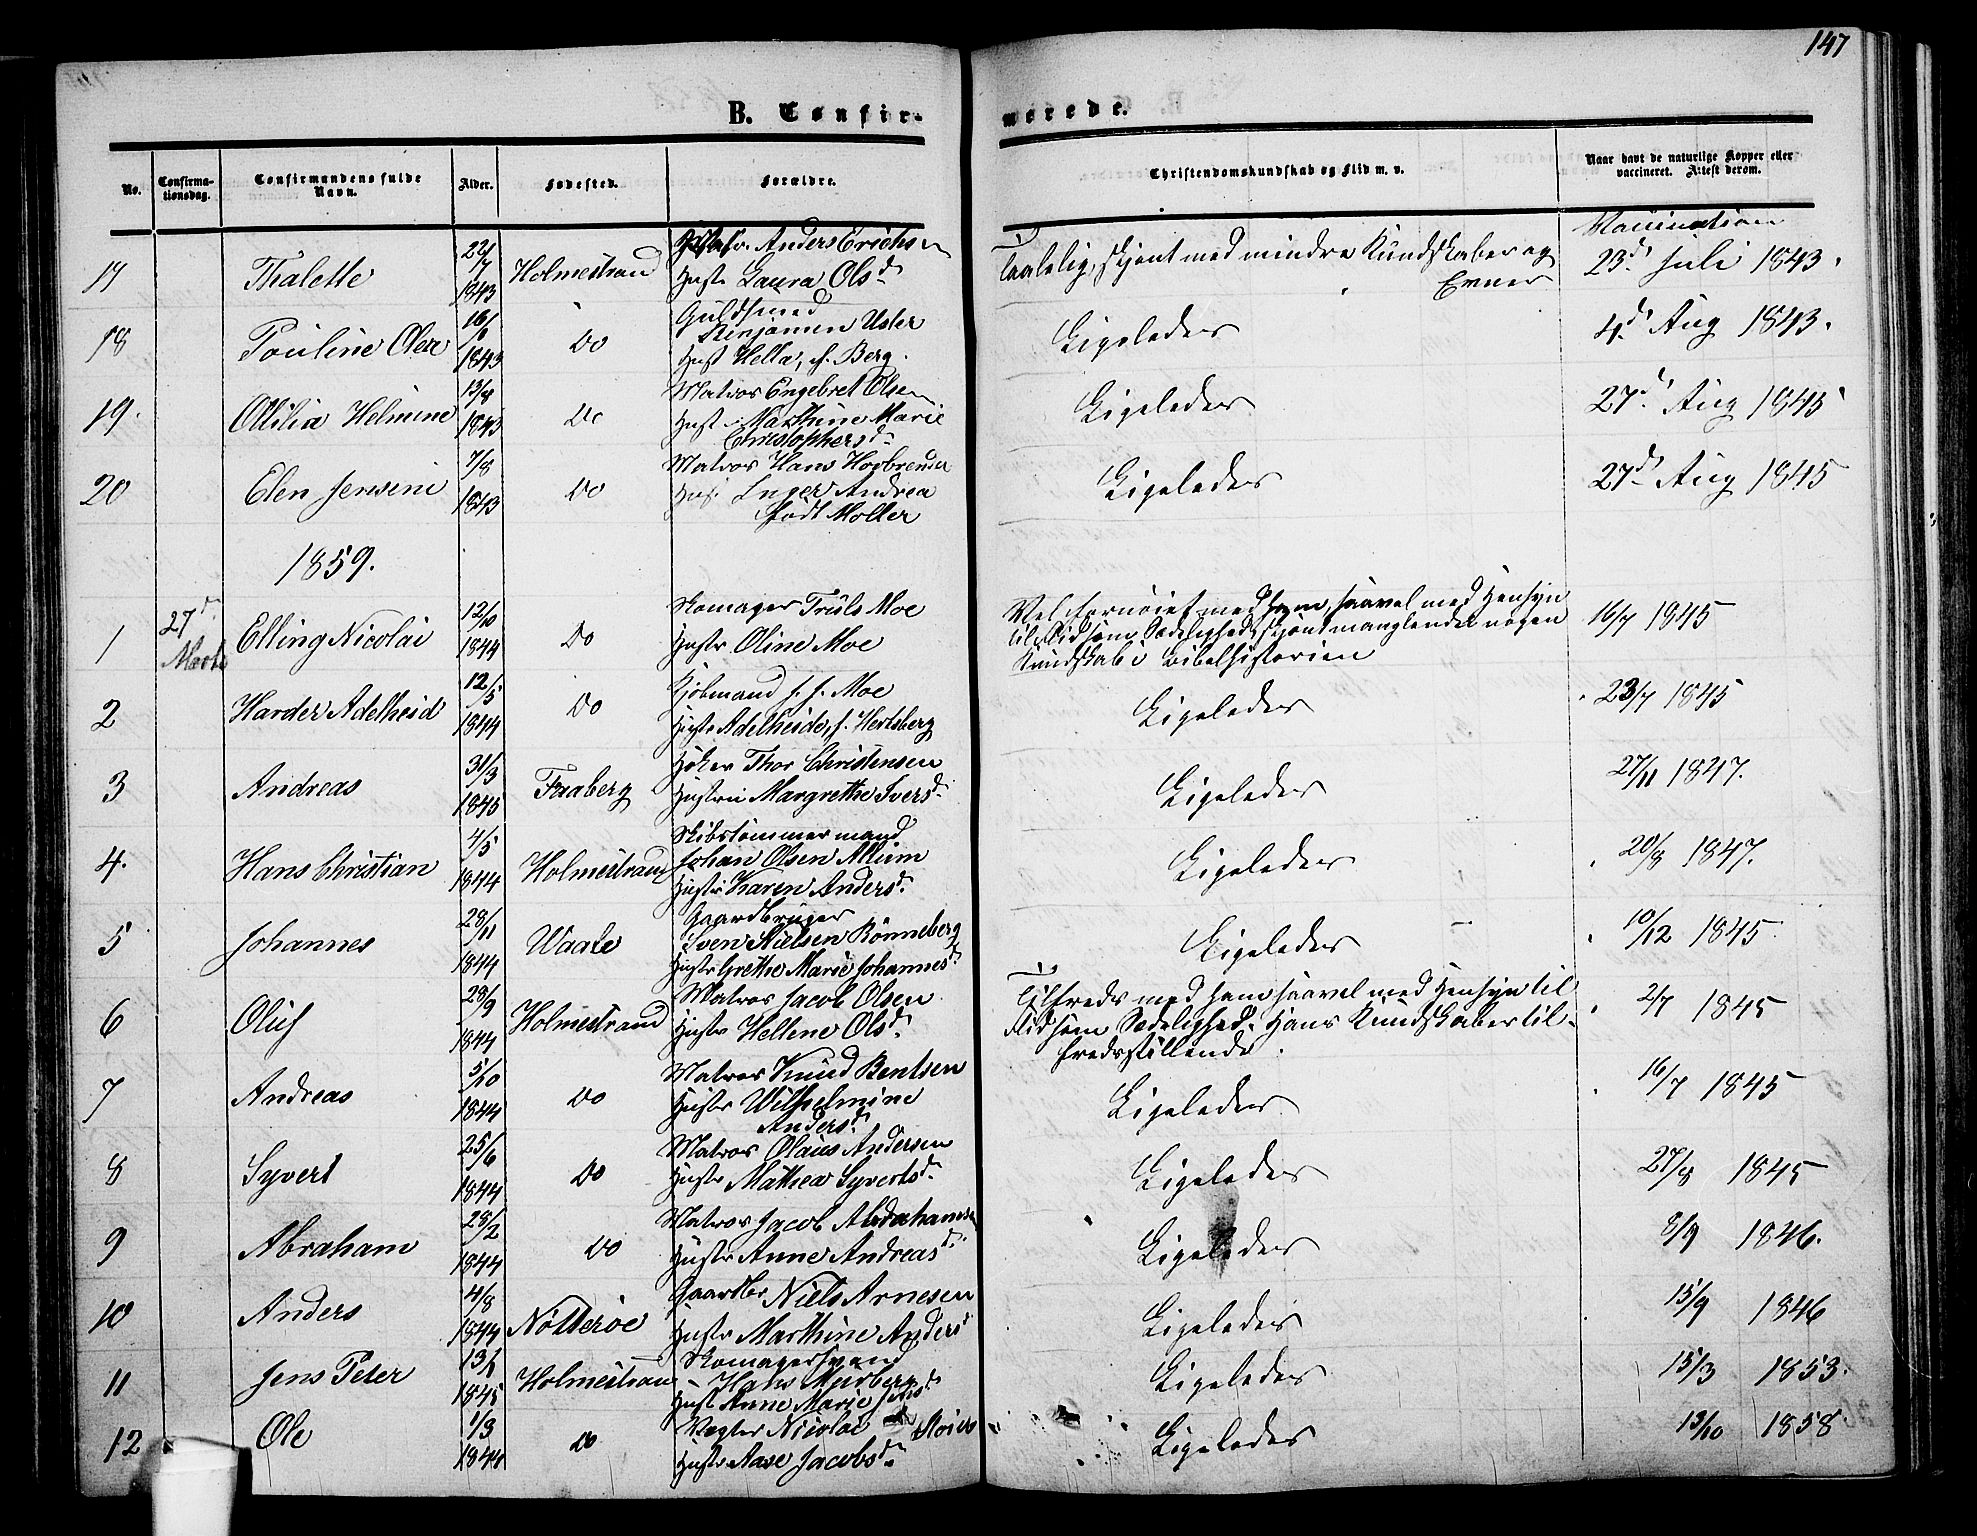 147
B. Confir-
merede.
No.
Confirma-
tionsdag.
Confirmandens fulde
Navn.
Alder.
Fødested.
Forældre.
Christendomskundskab og Flid m. v.
Naar havt de naturlige Kopper eller
vaccineret. Attest derom.
Vaccination
17 Thalette 22/7 1843 Holmestrand
Anders Erichsen
Hustr Laura Olsd.
Taalelig, skjønt med mindre Kundskaber og
Evner
23d Juli 1843.
18 Pouline Olea 16/1 1843 Do
Guldsmed
Benjamin Uster
Hust Hella, f. Berg.
Ligeledes
4d Aug 1843.
19. Ottilia Helmine 13/8 1843 Do
Matros Engebret Olsen
Hust. Marthine Marie
Christophersd.
Ligeledes
27d Aug 1845
20 Elen Jensine 7/8 1843 Do
Matros Hans Hovbrender
Hust Inger Andrea
født Moller
Ligeledes
27d Aug 1845
1859.
1 27d Marts Elling Nicolai 12/10 1844 Do
Skomager Truls Moe
Hustr Oline Moe
Vel fornøiet med ham, saavel med Hensyn
til Flid som Sædelighed, skjønt manglende nogen
Kundskab i Bibelhistorien
16/7 1845
2 Harder Adelheid 12/5 1844 Do
Kjøbmand J. J. Moe
Hustr Adelheide, f. Hertsberg
Ligeledes
23/7 1845
3 Andreas 31/3 1845 Faaberg
Høker Thor Christensen
Hustru Margrethe Iversd.
Ligeledes
27/11 1847.
4. Hans Christian 4/5 1844 Holmestrand
Skibstømmermand
Johan Olsen Allum
Hustr Karen Andersd.
Ligeledes
20/8 1847.
5 Johannes 28/11 1844 Waale
Gaardbruger
Sven Nielsen Rønneberg
Hustr Grethe Marie Johannesd.
Ligeledes
10/12 1845
6 Oluf 28/9 1844 Holmestrand
Matros Jacob Olsen
Hustr Hellene Olsd.
Tilfreds med ham saavel med Hensyn til
Flid som Sædelighed. Hans Kundskaber til-
fredsstillende.
2/7 1845
7 Andreas 5/10 1844 Do
Matros Knud Bentsen
Hustr Wilhelmine
Andersd.
Ligeledes
16/7 1845
8 Syvert 25/6 1844 Do
Matros Olaus Andersen
Hustr Mathea Syvertsd.
Ligeledes
27/8 1845
9 Abraham 28/2 1844 Do
Matros Jacob Abrahamsen
Hustr Anne Andreasd.
Ligeledes
8/9 1846.
10 Anders 4/8 1844 Nøtterøe
Gaardbr Niels Arnesen
Hustr Marthine Andersd
Ligeledes
15/9 1846
11 Jens Peter 13/1 1845 Holmestrand
Skomagersvend
Hans Aurberg
Hust Anne Marie Jensd
Ligeledes
15/3 1853.
12 Ole 1/3 1844 Do
Vægter Nicolai
Hustr Aase Jacobsd.
Ligeledes
13/10 1858